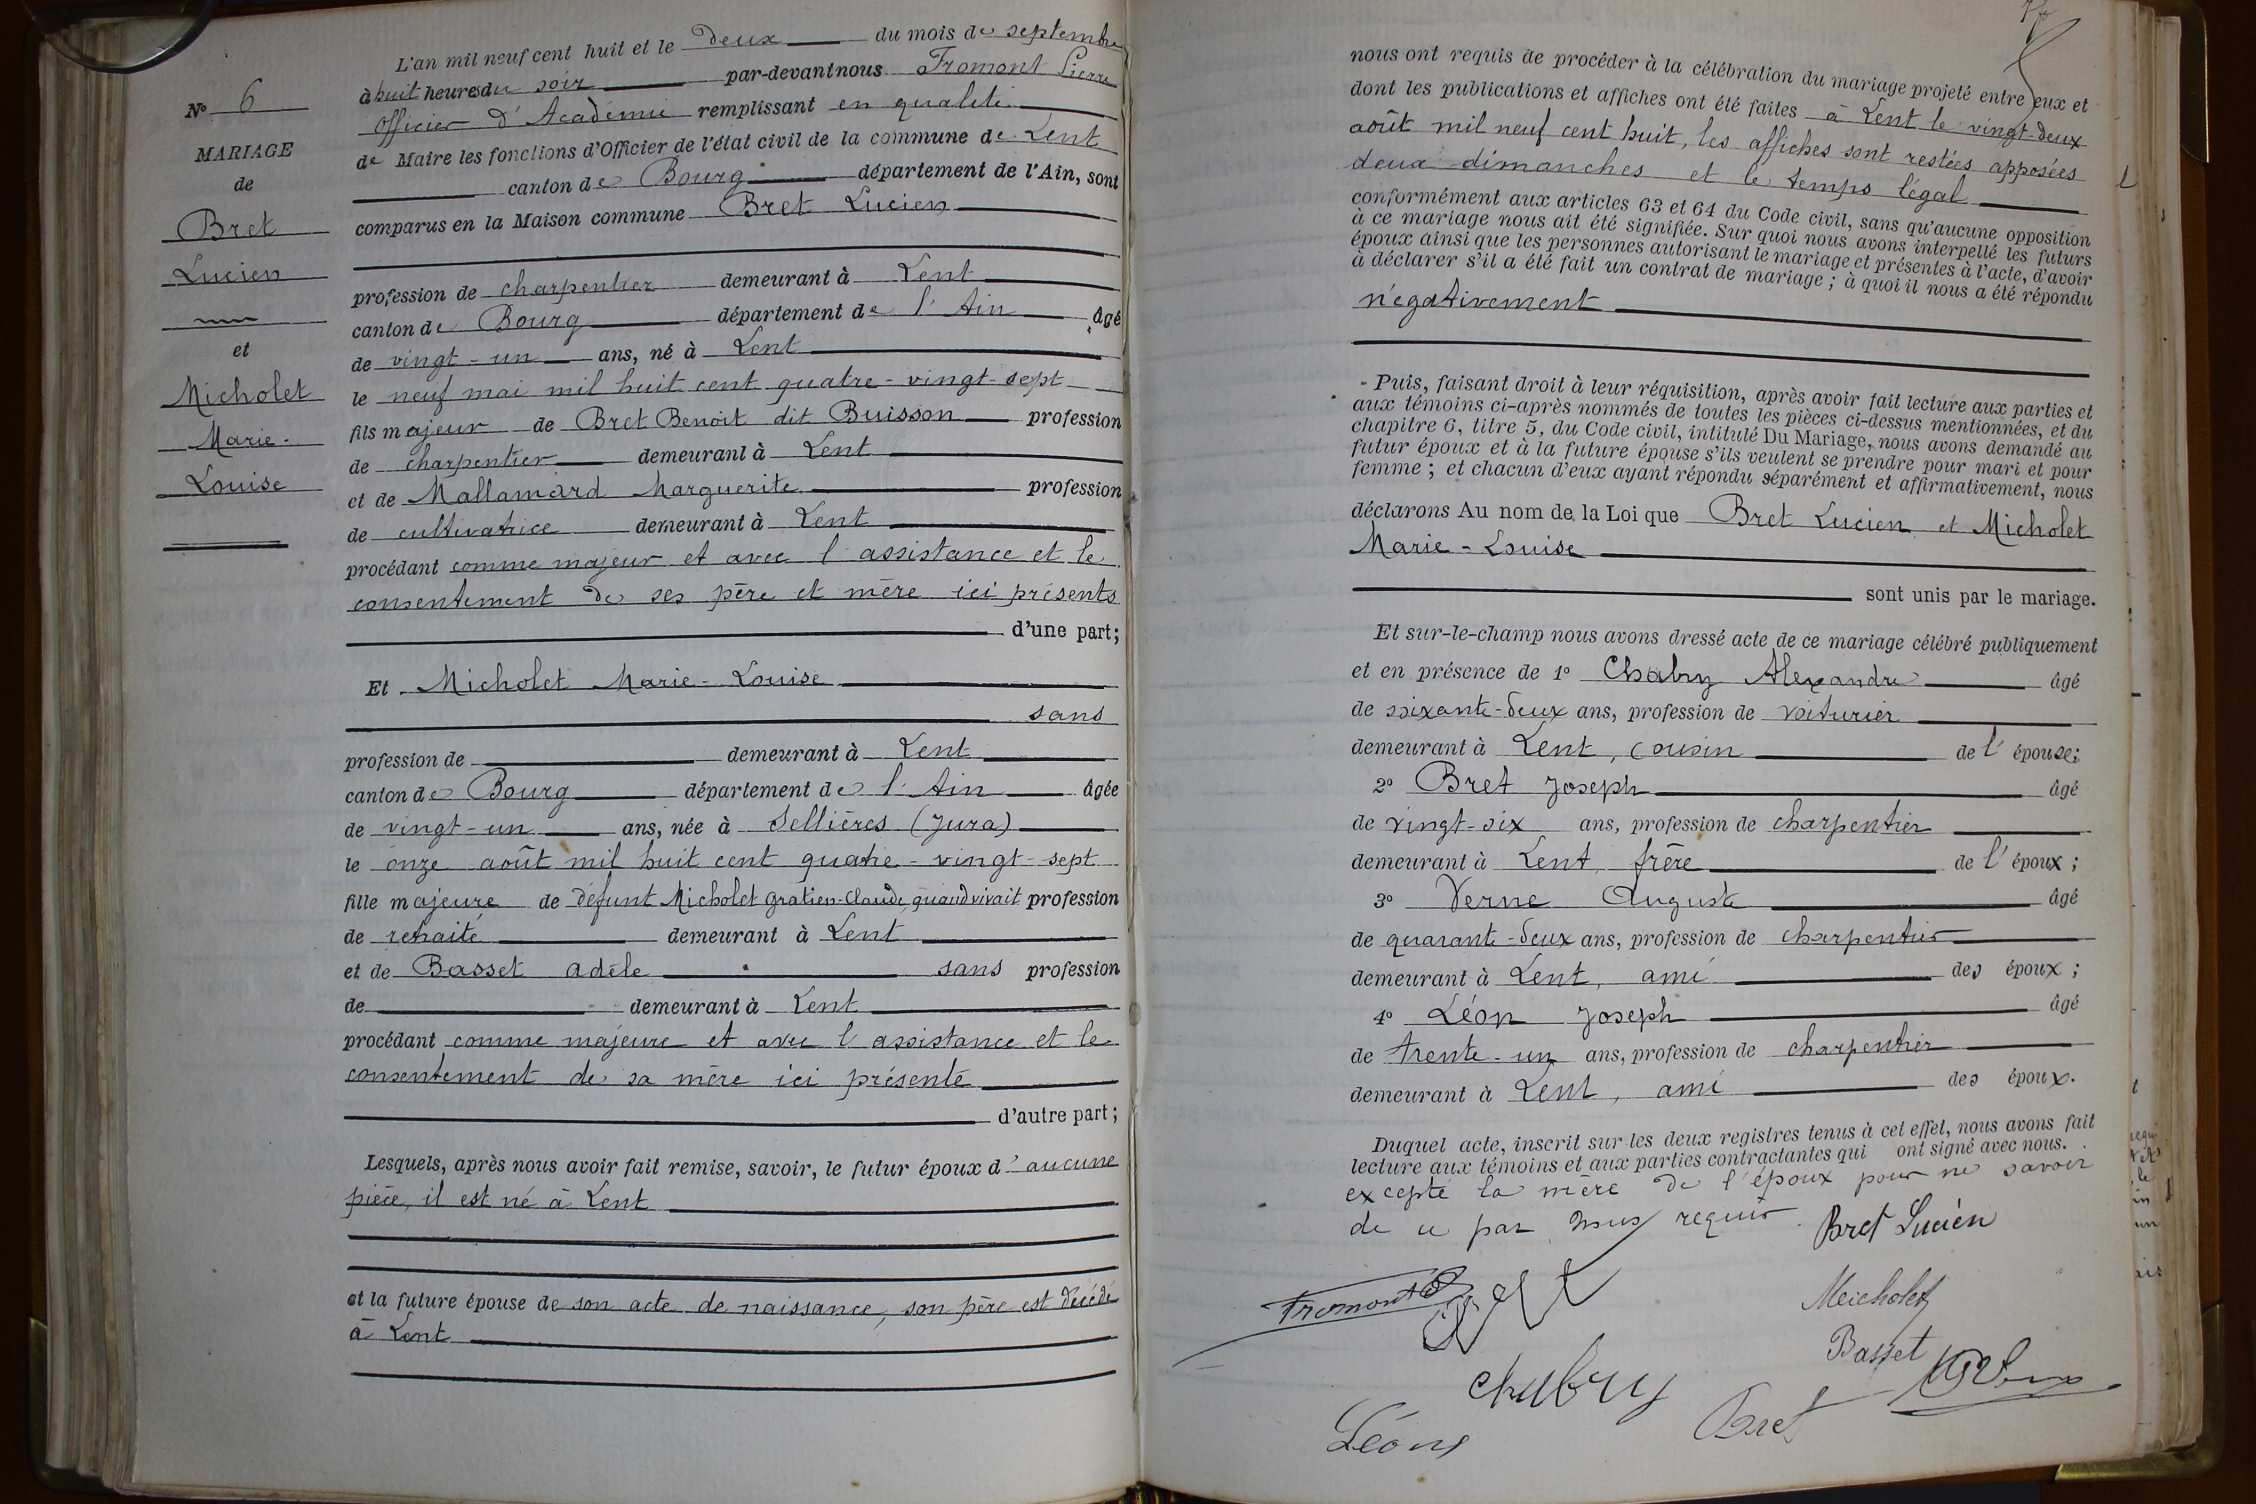 N° 6
MARIAGE
de
Bret
Lucien
et
Micholet
Marie-
Louise
L'an mil neuf cent huit et le deux du mois de septembre
à huit heures du soir par-devant nous Fromont Pierre
Officier d'Académie remplissant en qualité
de Maire les fonctions d'Officier de l'état civil de la commune de Lent
canton de Bourg département de l'Ain, sont
comparus en la Maison commune Bret Lucien
profession de charpentier demeurant à Lent
canton de Bourg département de l'Ain âgé
de vingt-un ans, né à Lent
le neuf mai mil huit cent quatre-vingt-sept
fils majeur de Bret Benoit dit Buisson profession
de charpentier demeurant à Lent
et de Mallamard Marguerite profession
de cultivatrice demeurant à Lent
procédant comme majeur et avec l'assistance et le
consentement de ses père et mère ici présents
d'une part;
Et Micholet Marie-Louise
sans
profession de demeurant à Lent
canton de Bourg département de l'Ain âgée
de vingt-un ans, née à Sellières (Jura)
le onze août mil huit cent quatre-vingt-sept
fille majeure de défunt Micholet Gratien-Claude, quand vivait profession
de retraité demeurant à Lent
et de Basset Adèle sans profession
de demeurant à Lent
procédant comme majeure et avec l'assistance et le
consentement de sa mère ici présente
d'autre part;
Lesquels, après nous avoir fait remise, savoir, le futur époux d'aucune
pièce, il est né à Lent
et la future épouse de son acte de naissance, son père est décédé
à Lent
nous ont requis de procéder à la célébration du mariage projeté entre eux et
dont les publications et affiches ont été faites à Lent le vingt-deux
août mil neuf cent huit, les affiches sont restées apposées
deux dimanches et le temps légal
conformément aux articles 63 et 64 du Code civil, sans qu'aucune opposition
à ce mariage nous ait été signifiée. Sur quoi nous avons interpellé les futurs
époux ainsi que les personnes autorisant le mariage et présentes à l'acte, d'avoir
à déclarer s'il a été fait un contrat de mariage; à quoi il nous a été répondu
négativement
Puis, faisant droit à leur réquisition, après avoir fait lecture aux parties et
aux témoins ci-après nommés de toutes les pièces ci-dessus mentionnées, et du
chapitre 6, titre 5, du Code civil, intitulé Du Mariage, nous avons demandé au
futur époux et à la future épouse s'ils veulent se prendre pour mari et pour
femme; et chacun d'eux ayant répondu séparément et affirmativement, nous
déclarons Au nom de la Loi que Bret Lucien et Micholet
Marie-Louise
sont unis par le mariage.
Et sur-le-champ nous avons dressé acte de ce mariage célébré publiquement
et en présence de 1° Chabry Alexandre âgé
de soixante-deux ans, profession de voiturier
demeurant à Lent, cousin de l'épouse;
2° Bret Joseph âgé
de vingt-six ans, profession de charpentier
demeurant à Lent, frère de l'époux;
3° Verne Auguste âgé
de quarante-deux ans, profession de charpentier
demeurant à Lent, ami des époux;
4° Léon Joseph âgé
de trente-un ans, profession de charpentier
demeurant à Lent, ami des époux.
Duquel acte, inscrit sur les deux registres tenus à cet effet, nous avons fait
lecture aux témoins et aux parties contractantes qui ont signé avec nous.
excepté la mère de l'époux pour ne savoir
de ce par nous requis.
Bret Lucien
Fromont
Micholet
Basset
Chabry
Bret
Léon